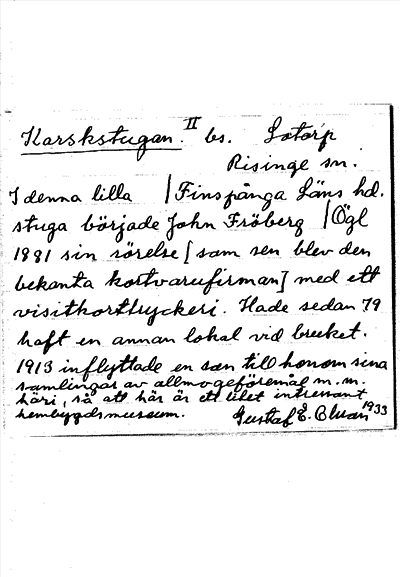 Karskstugan. II bs. Lotorp
Risinge sn.
I denna lilla | Finspånga Läns hd.
stuga började John Fröberg | Ögl
1881 sin rörelse [som sen blev den
bekanta kortvarufirman] med ett
visitkorttryckeri. Hade sedan 79
haft en annan lokal vid bruket.
1913 inflyttade en son till honom sina
samlingar av allmogeföremål m.m.
häri, så att här är ett litet intressant
hembygdsmuseum. Gustaf E. 1933